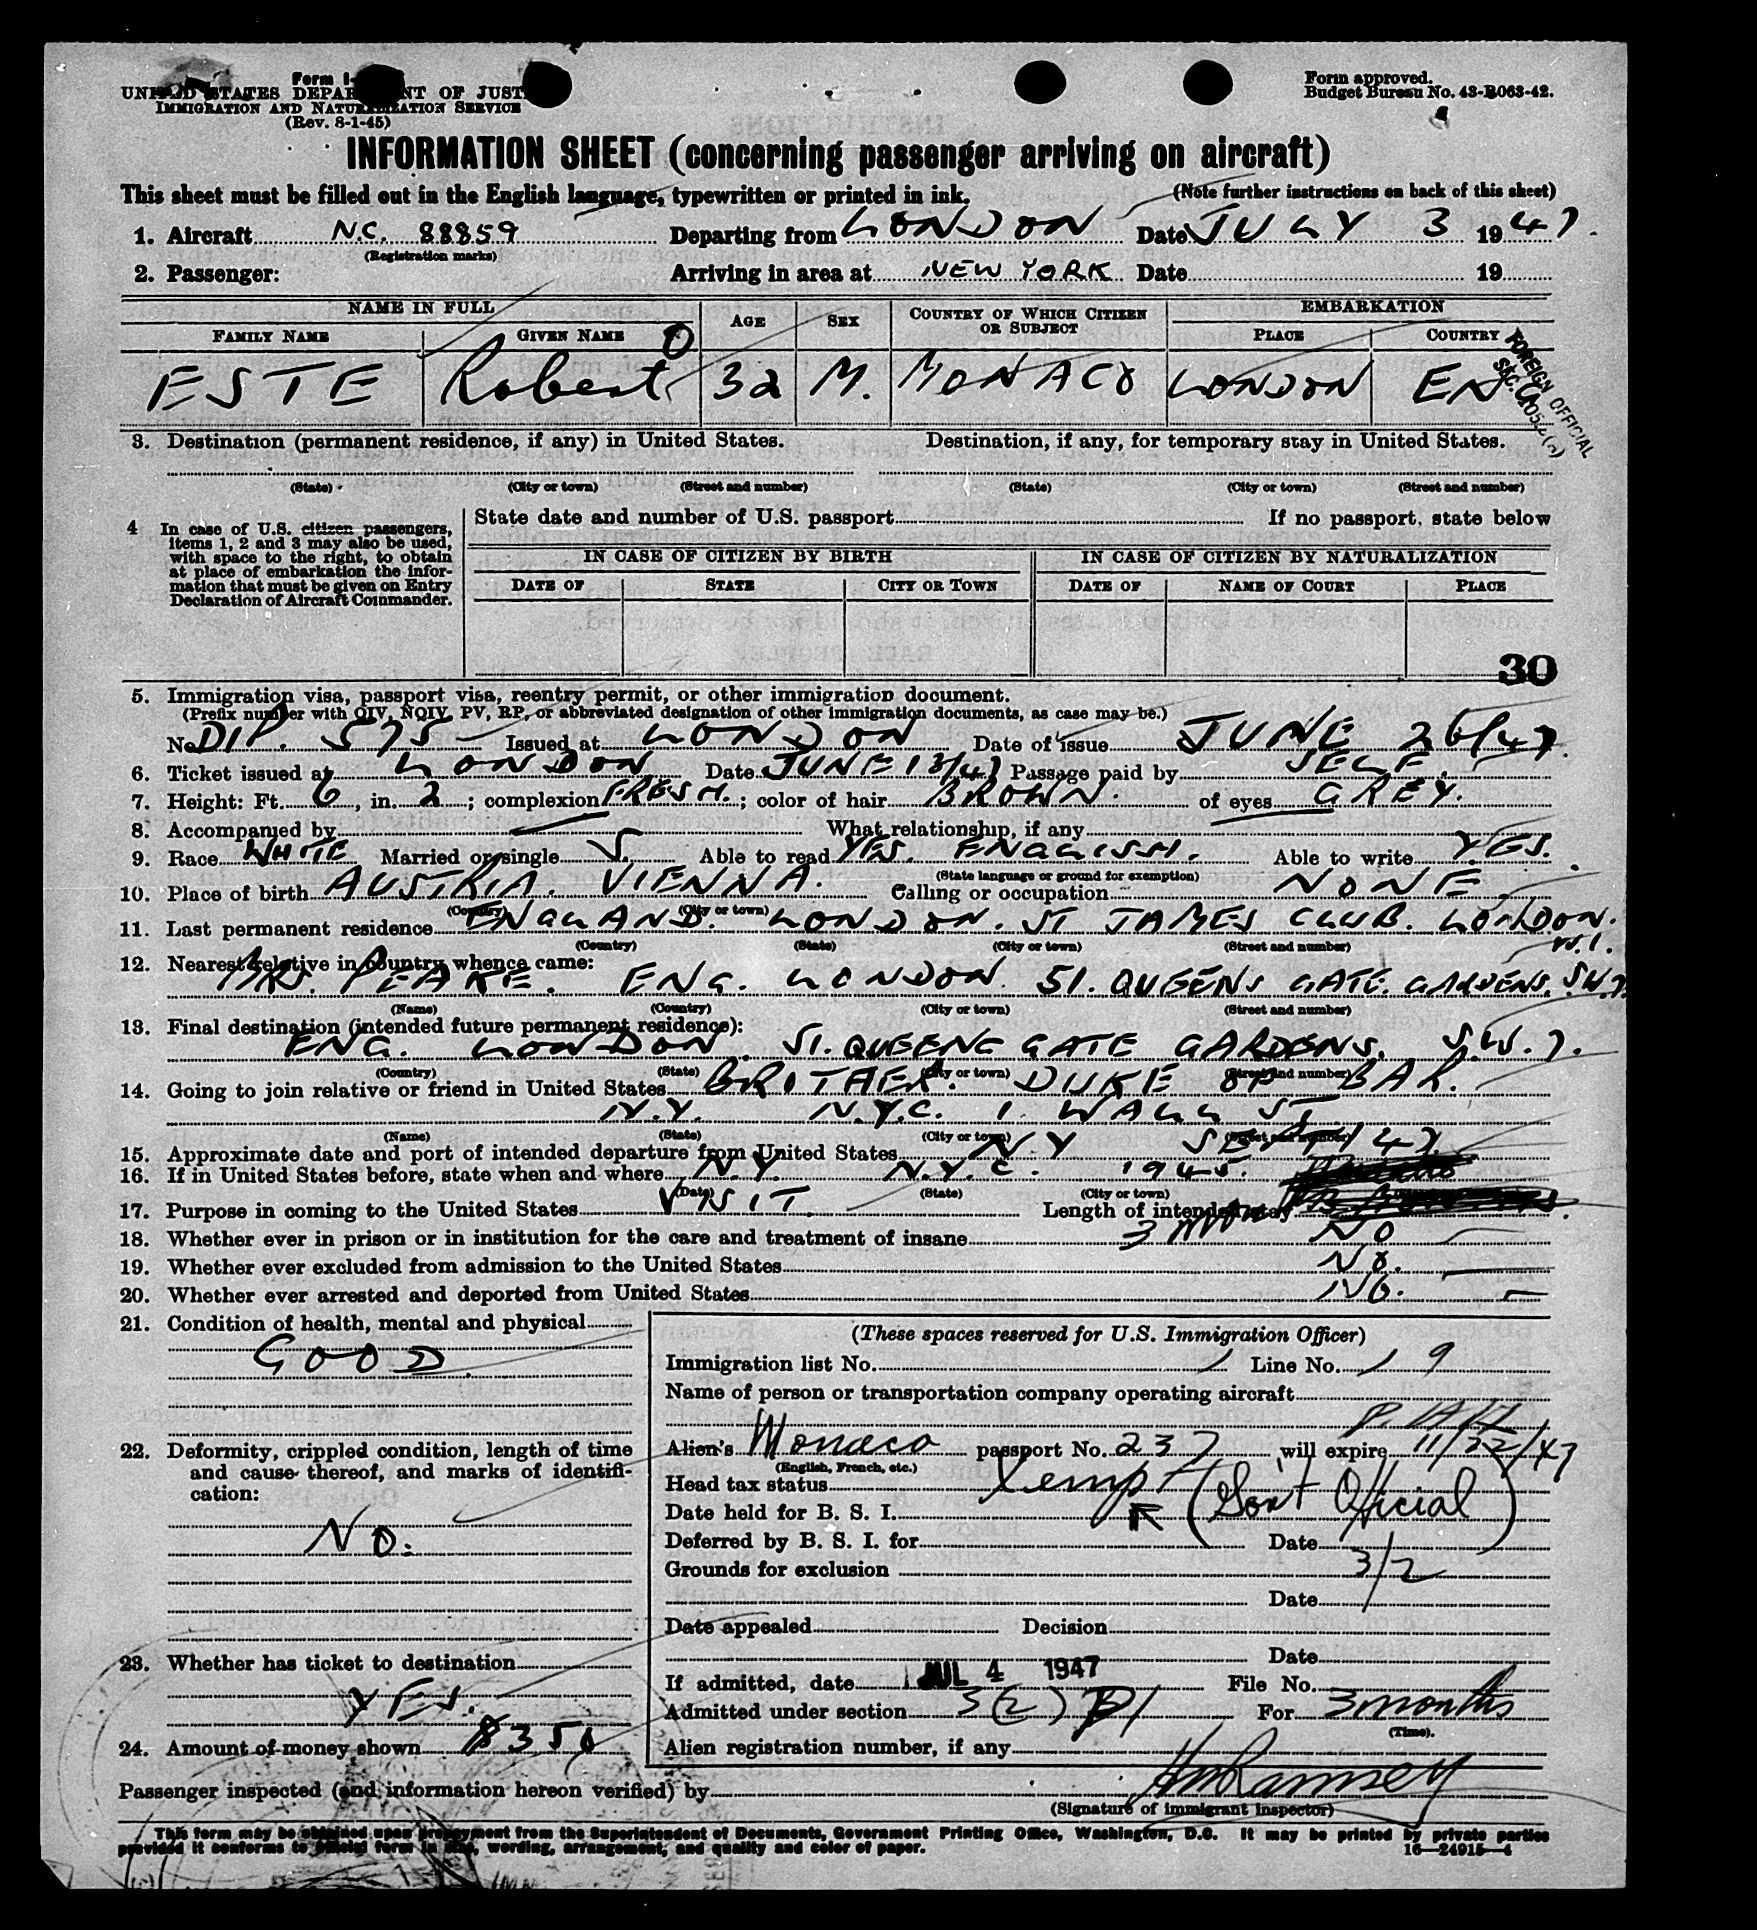 Form I-
UNITED STATES DEPARTMENT OF JUST
IMMIGRATION AND NATURALIZATION SERVICE
(Rev. 8-1-45)
Form approved.
Budget Bureau No. 43-R063-42.
INFORMATION SHEET (concerning passenger arriving on aircraft)
This sheet must be filled out in the English language, typewritten or printed in ink. (Note further instructions on back of this sheet)
1. Aircraft N.C. 88859 Departing from LONDON Date JULY 3 1947.
(Registration marks)
2. Passenger: Arriving in area at NEW YORK Date 19
NAME IN FULL AGE SEX COUNTRY OF WHICH CITIZEN OR SUBJECT EMBARKATION
FAMILY NAME GIVEN NAME PLACE COUNTRY
ESTE Robert 32 M. MONACO LONDON ENG
FOREIGN OFFICIAL
3. Destination (permanent residence, if any) in United States. Destination, if any, for temporary stay in United States.
(State) (City or town) (Street and number) (State) (City or town) (Street and number)
4 In case of U.S. citizen passengers, items 1, 2 and 3 may also be used, with space to the right, to obtain at place of embarkation the information that must be given on Entry Declaration of Aircraft Commander.
State date and number of U.S. passport If no passport, state below
IN CASE OF CITIZEN BY BIRTH IN CASE OF CITIZEN BY NATURALIZATION
DATE OF STATE CITY OR TOWN DATE OF NAME OF COURT PLACE
30
5. Immigration visa, passport visa, reentry permit, or other immigration document.
(Prefix number with QIV, NQIV, PV, RP, or abbreviated designation of other immigration documents, as case may be.)
No. DIP. 575 Issued at LONDON Date of issue JUNE 26/47.
6. Ticket issued at LONDON Date JUNE 13/47 Passage paid by SELF.
7. Height: Ft. 6, in. 2; complexion FRESH.; color of hair BROWN. of eyes GREY.
8. Accompanied by — What relationship, if any
9. Race WHITE Married or single S. Able to read YES. ENGLISH. Able to write YES.
(State language or ground for exemption)
10. Place of birth AUSTRIA. VIENNA. Calling or occupation NONE.
(Country) (City or town)
11. Last permanent residence ENGLAND. LONDON. ST JAMES CLUB. LONDON. W.1.
(Country) (State) (City or town) (Street and number)
12. Nearest relative in country whence came:
MRS. PEAKE. ENG. LONDON. 51. QUEENS GATE. GARDENS. S.W.7.
(Name) (Country) (City or town) (Street and number)
13. Final destination (intended future permanent residence):
ENG. LONDON. 51. QUEENS GATE GARDENS. S.W.7.
(Country) (State) (City or town) (Street and number)
14. Going to join relative or friend in United States BROTHER. DUKE OF BAR.
N.Y. N.Y.C. 1. WALL ST
(Name) (State) (City or town) (Street and number)
15. Approximate date and port of intended departure from United States N.Y SEPT/47
16. If in United States before, state when and where N.Y. N.Y.C. 1945.
(Date) (State) (City or town)
17. Purpose in coming to the United States VISIT. Length of intended stay 3 mon
18. Whether ever in prison or in institution for the care and treatment of insane NO
19. Whether ever excluded from admission to the United States NO.
20. Whether ever arrested and deported from United States NO.
21. Condition of health, mental and physical
GOOD.
22. Deformity, crippled condition, length of time and cause thereof, and marks of identification:
NO.
23. Whether has ticket to destination
YES.
24. Amount of money shown $350
(These spaces reserved for U.S. Immigration Officer)
Immigration list No. 1 Line No. 9
Name of person or transportation company operating aircraft
Alien's Monaco passport No. 237, will expire 11/22/47
(English, French, etc.)
Head tax status Exempt (Gov't Official)
Date held for B. S. I.
Deferred by B. S. I. for Date 3/2
Grounds for exclusion
Date
Date appealed Decision
Date
If admitted, date JUL 4 1947 File No.
Admitted under section 3(2) For 3 months
(Time).
Alien registration number, if any
Passenger inspected (and information hereon verified) by HM Ramsey
(Signature of immigrant inspector)
This form may be obtained upon prepayment from the Superintendent of Documents, Government Printing Office, Washington, D.C. It may be printed by private parties
provided it conforms to official form in size, wording, arrangement, and quality and color of paper. 16—24915-4